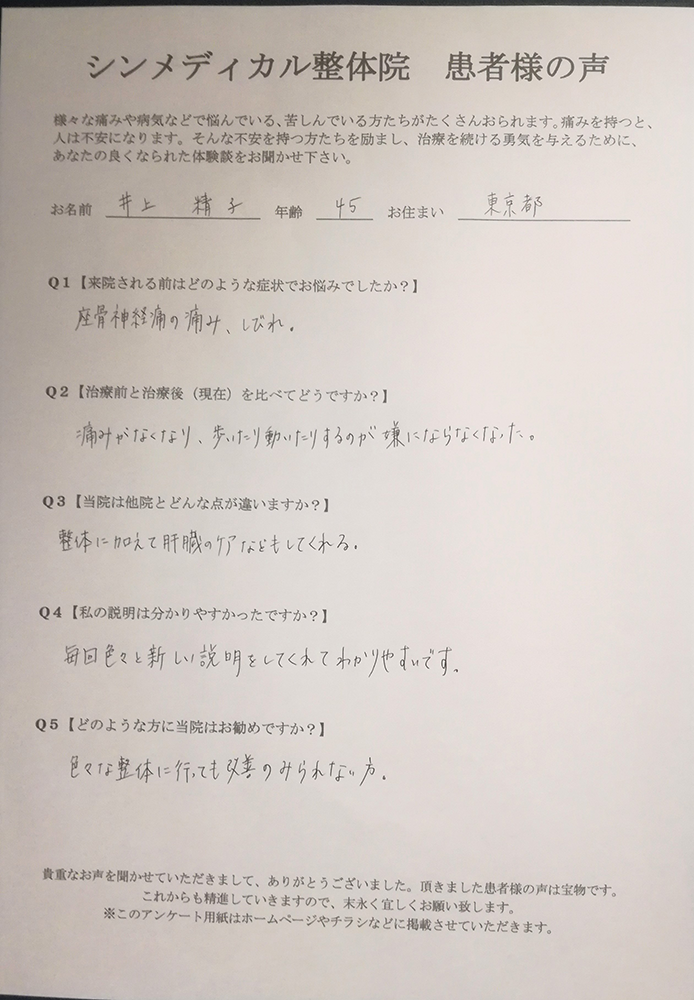 シンメディカル整体院　患者様の声
様々な痛みや病気などで悩んでいる、苦しんでいる方たちがたくさんおられます。痛みを持つと、
人は不安になります。そんな不安を持つ方たちを励まし、治療を続ける勇気を与えるために、
あなたの良くなられた体験談をお聞かせ下さい。
お名前 井上 精子 年齢 45 お住まい 東京都
Q1【来院される前はどのような症状でお悩みでしたか？】
座骨神経痛の痛み、しびれ。
Q2【治療前と治療後（現在）を比べてどうですか？】
痛みがなくなり、歩いたり動いたりするのが嫌にならなくなった。
Q3【当院は他院とどんな点が違いますか？】
整体に加えて肝臓のケアなどもしてくれる。
Q4【私の説明は分かりやすかったですか？】
毎回色々と新しい説明をしてくれてわかりやすいです。
Q5【どのような方に当院はお勧めですか？】
色々な整体に行っても改善のみられない方。
貴重なお声を聞かせていただきまして、ありがとうございました。頂きました患者様の声は宝物です。
これからも精進していきますので、末永く宜しくお願い致します。
※このアンケート用紙はホームページやチラシなどに掲載させていただきます。